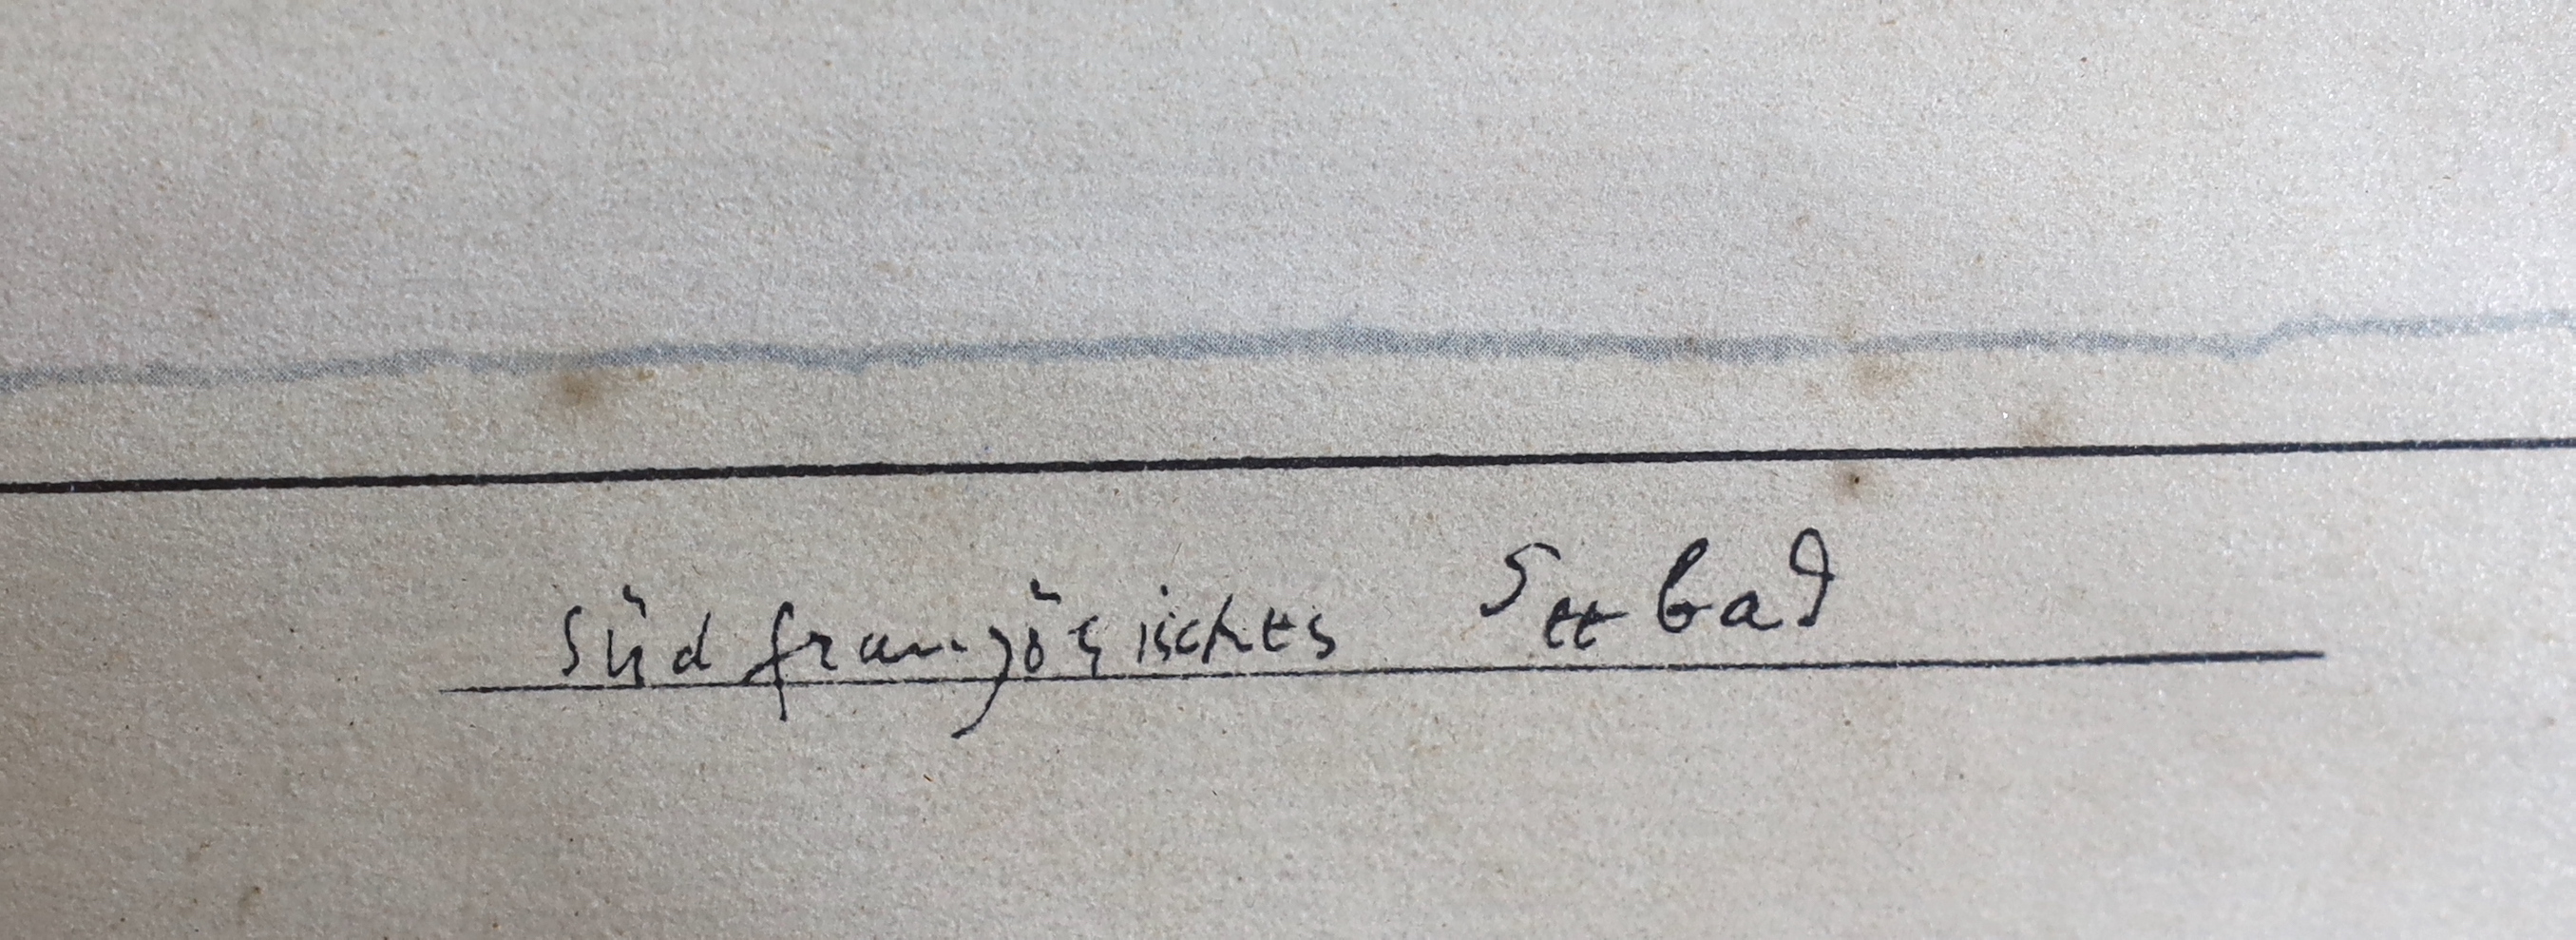 Südfranzösisches Seebad